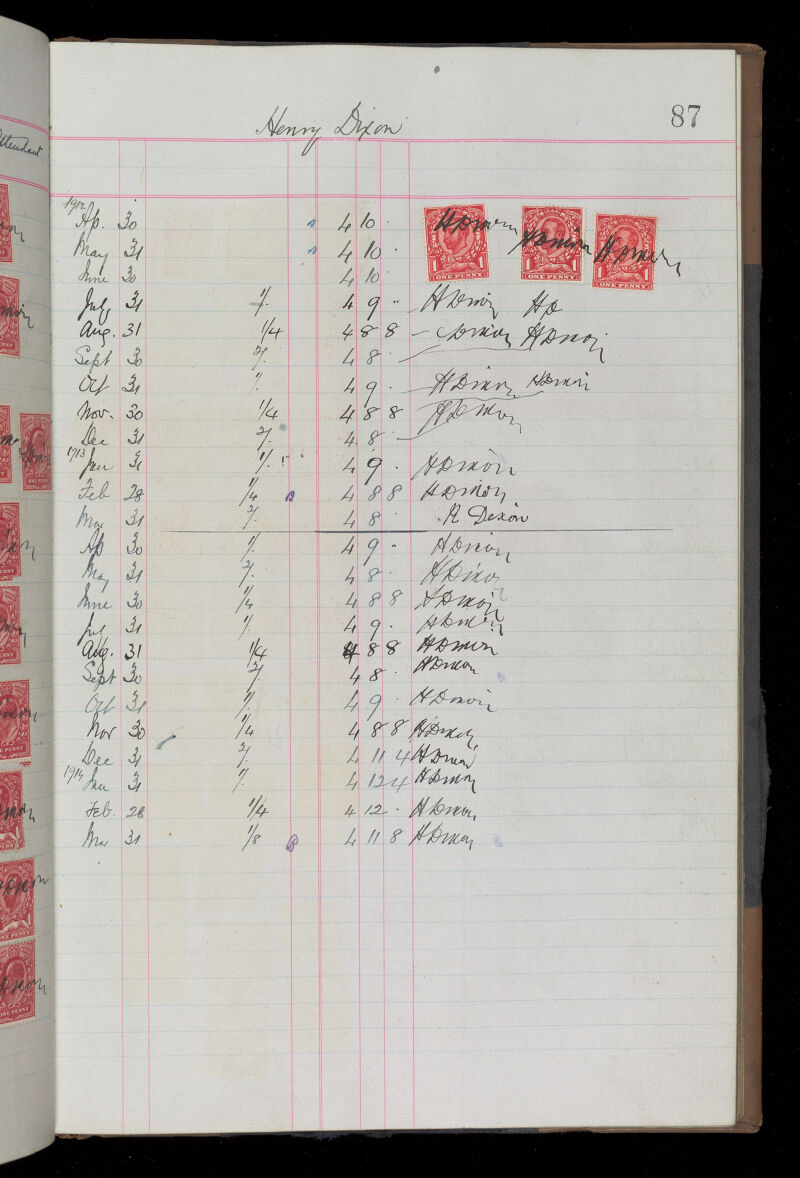 Attendant
87
Henry Dixon
1912
Ap. 30 4 10 · HDixon HDixon HDixon
1 ONE PENNY 1
1 ONE PENNY 1
1 ONE PENNY 1
May 31 4 10 ·
June 30 4 10 ·
July 31 1/. 4 9 " HDixon HD
Aug. 31 1/4 4 8 8 Dixon HDixon
Sept 30 2/. 4 8 ·
Oct 31 1/. 4 9 · HDixon HDixon
Nov. 30 1/4 4 8 8 HDixon
Dec 31 2/. 4 8 ·
1913
Jan 31 1/. 4 9 · HDixon
Feb 28 1/4 4 8 8 HDixon
Mar 31 2/. 4 8 · Dixon
Ap 30 1/. 4 9 · HDixon
May 31 2/. 4 8 · HDixon
June 30 1/4 4 8 8 HDixon
July 31 1/. 4 9 · HDixon
Aug. 31 1/4 4 8 8 HDixon
Sept 30 2/. 4 8 · HDixon
Oct 31 1/. 4 9 · HDixon
Nov 30 1/4 4 8 8 HDixon
Dec 31 2/. 4 11 4 HDixon
1914
Jan 31 1/. 4 12 4 HDixon
Feb. 28 1/4 4 12 · HDixon
Mar 31 1/8 4 11 8 HDixon